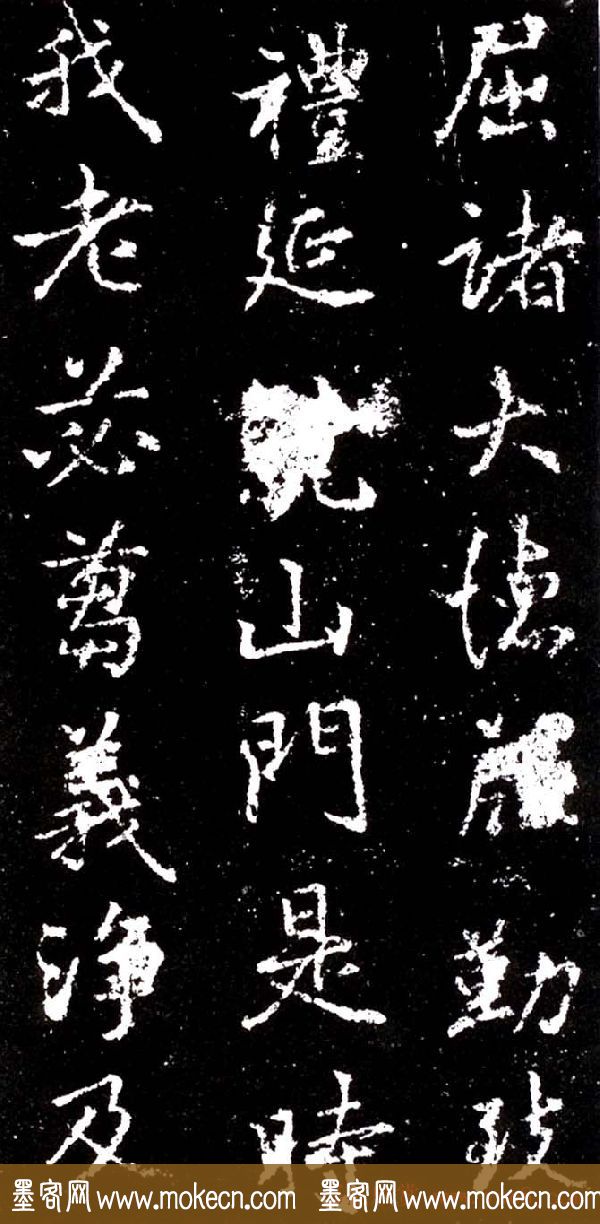 屈諸大德勤致
禮延山門是時
我老苾蒭義淨及
墨客网 www.mokecn.com 墨客网 www.mokecn.com